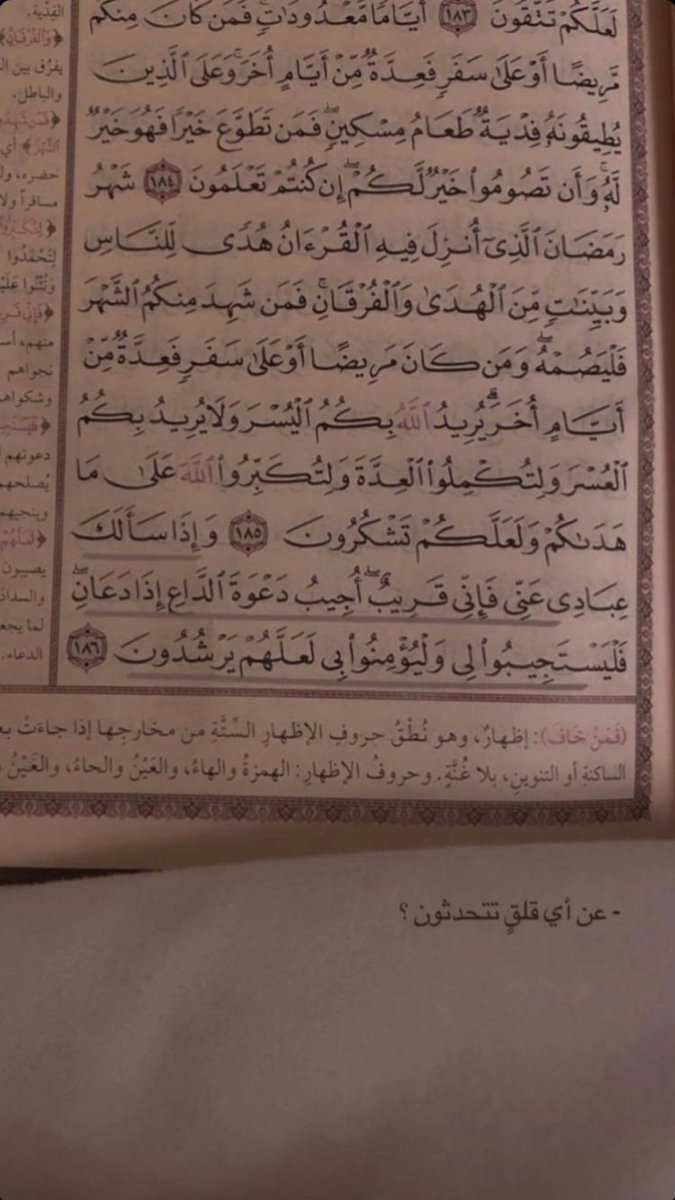 لَعَلَّكُمْ تَتَّقُونَ ١٨٣ أَيَّامًا مَّعْدُودَاتٍ فَمَن كَانَ مِنكُم
مَّرِيضًا أَوْ عَلَىٰ سَفَرٍ فَعِدَّةٌ مِّنْ أَيَّامٍ أُخَرَ وَعَلَى الَّذِينَ
يُطِيقُونَهُ فِدْيَةٌ طَعَامُ مِسْكِينٍ فَمَن تَطَوَّعَ خَيْرًا فَهُوَ خَيْرٌ
لَّهُ وَأَن تَصُومُوا خَيْرٌ لَّكُمْ إِن كُنتُمْ تَعْلَمُونَ ١٨٤ شَهْرُ
رَمَضَانَ الَّذِي أُنزِلَ فِيهِ الْقُرْءَانُ هُدًى لِّلنَّاسِ
وَبَيِّنَٰتٍ مِّنَ الْهُدَىٰ وَالْفُرْقَانِ فَمَن شَهِدَ مِنكُمُ الشَّهْرَ
فَلْيَصُمْهُ وَمَن كَانَ مَرِيضًا أَوْ عَلَىٰ سَفَرٍ فَعِدَّةٌ مِّنْ
أَيَّامٍ أُخَرَ يُرِيدُ اللَّهُ بِكُمُ الْيُسْرَ وَلَا يُرِيدُ بِكُمُ
الْعُسْرَ وَلِتُكْمِلُوا الْعِدَّةَ وَلِتُكَبِّرُوا اللَّهَ عَلَىٰ مَا
هَدَىٰكُمْ وَلَعَلَّكُمْ تَشْكُرُونَ ١٨٥ وَإِذَا سَأَلَكَ
عِبَادِي عَنِّي فَإِنِّي قَرِيبٌ أُجِيبُ دَعْوَةَ الدَّاعِ إِذَا دَعَانِ
فَلْيَسْتَجِيبُوا لِي وَلْيُؤْمِنُوا بِي لَعَلَّهُمْ يَرْشُدُونَ ١٨٦
الفِدْية.
﴿وَالْفُرْقَانِ﴾
يفرُق بين
والباطل.
﴿فَمَن شَهِدَ
الشَّهْرَ﴾ أي
حضره،
مسافراً ولا
لِتَحْمَدُوا
منهم،
نجواهم
وشكواهم
دعوتهم
يُصلحهم
وينجيهم
يصيبون
والسداد
لما
الدعاء.
(فَمَنْ خَافَ): إظهارٌ، وهو نُطْقُ حروفِ الإظهارِ السِّتَّةِ من مخارجِها إذا جاءَتْ
الساكنةِ أو التنوينِ، بلا غُنَّةٍ. وحروفُ الإظهارِ: الهمزةُ والهاءُ، والعَيْنُ والحاءُ، والغَيْنُ
- عن أي قلقٍ تتحدثون ؟